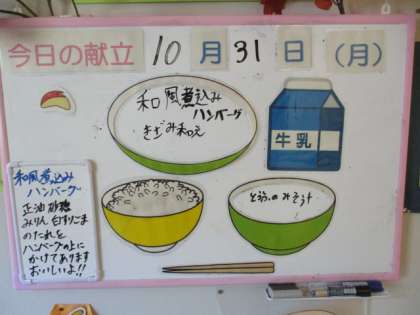 今日の献立 10月31日(月)
和風煮込み
ハンバーグ
きざみ和え
牛乳
とうふのみそ汁
和風煮込み
ハンバーグ
正油 砂糖
みりん 白すりごま
のたれを
ハンバーグの上に
かけてあります
おいしいよ!!